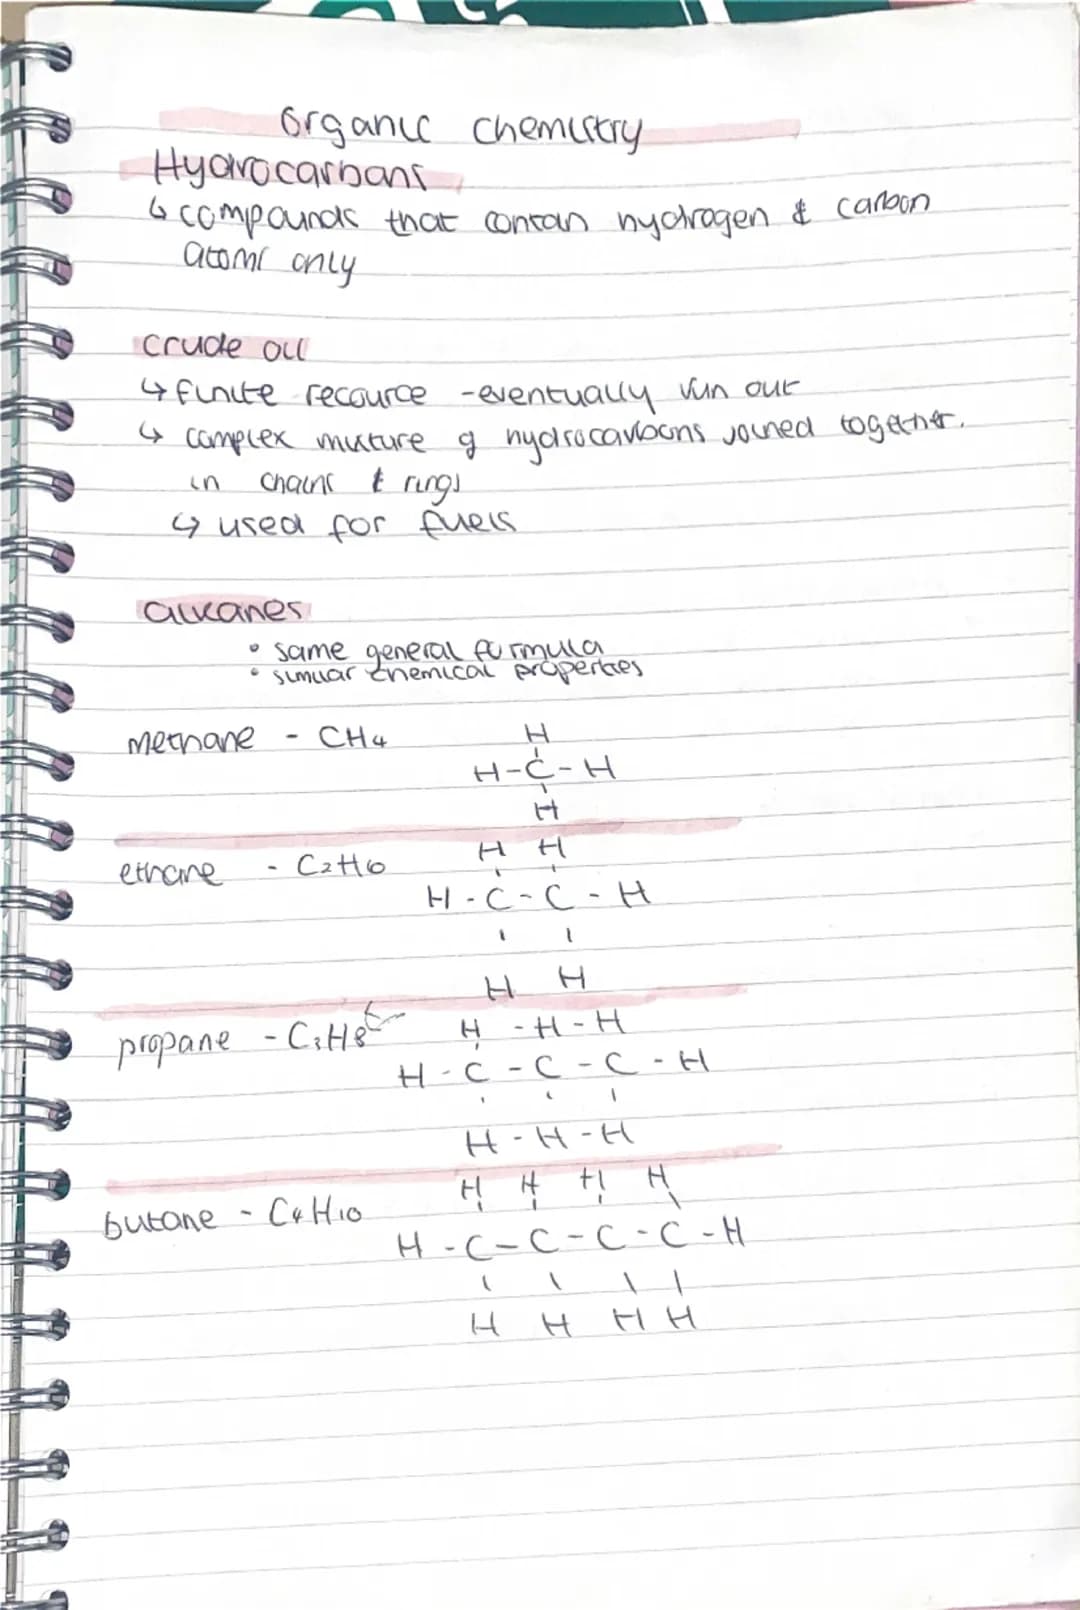 Organic chemistry
Hydrocarbons
↳ compounds that contain hydrogen & carbon
atoms only
crude oil
↳ finite recource - eventually run out
↳ complex mixture of hydrocarbons joined together.
in chains & rings
↳ used for fuels
alkanes
• same general formula
• similar chemical properties
methane - CH4
H
H-C-H
H
H H
ethane - C2H6
H-C-C-H
H H
propane - C3H8
H-H-H
H-C-C-C-H
H-H-H
H H H H
butane - C4H10
H-C-C-C-C-H
H H H H